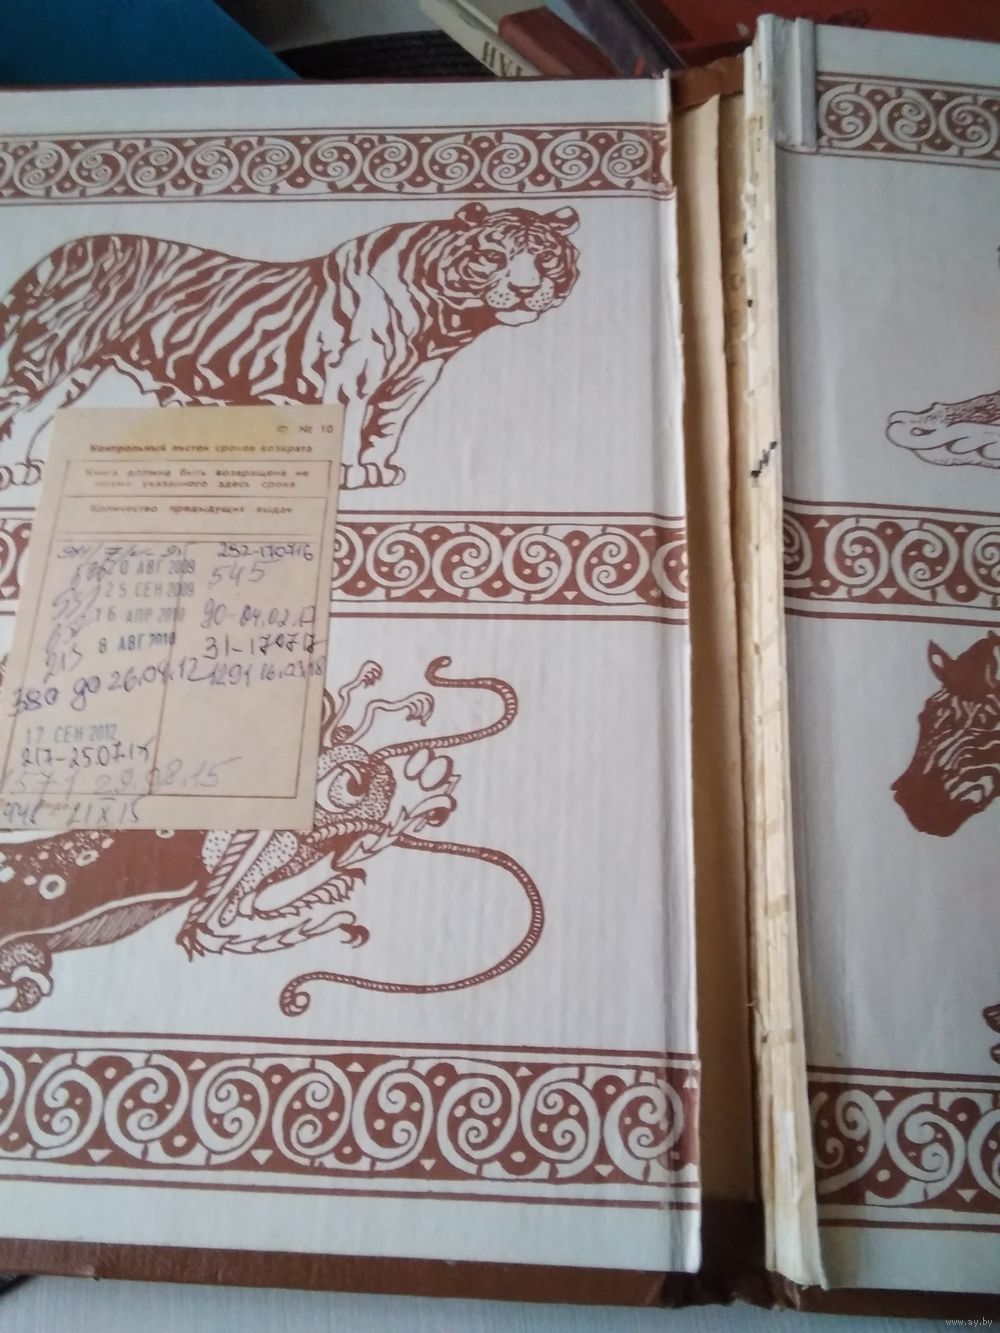 ТАН
Ф № 10
Контрольный листок сроков возврата
Книга должна быть возвращена не
позже указанного здесь срока
Количество предыдущих выдач
252-170716
20 АВГ 2009 545
25 СЕН 2009
16 АПР 2010 90-04.02.17
213 8 АВГ 2010 31-170717
380 до 26.04.12 1291 16.03.18
17 СЕН 2012
217-250715
1571 29.08.15
21 X 15
www.ay.by